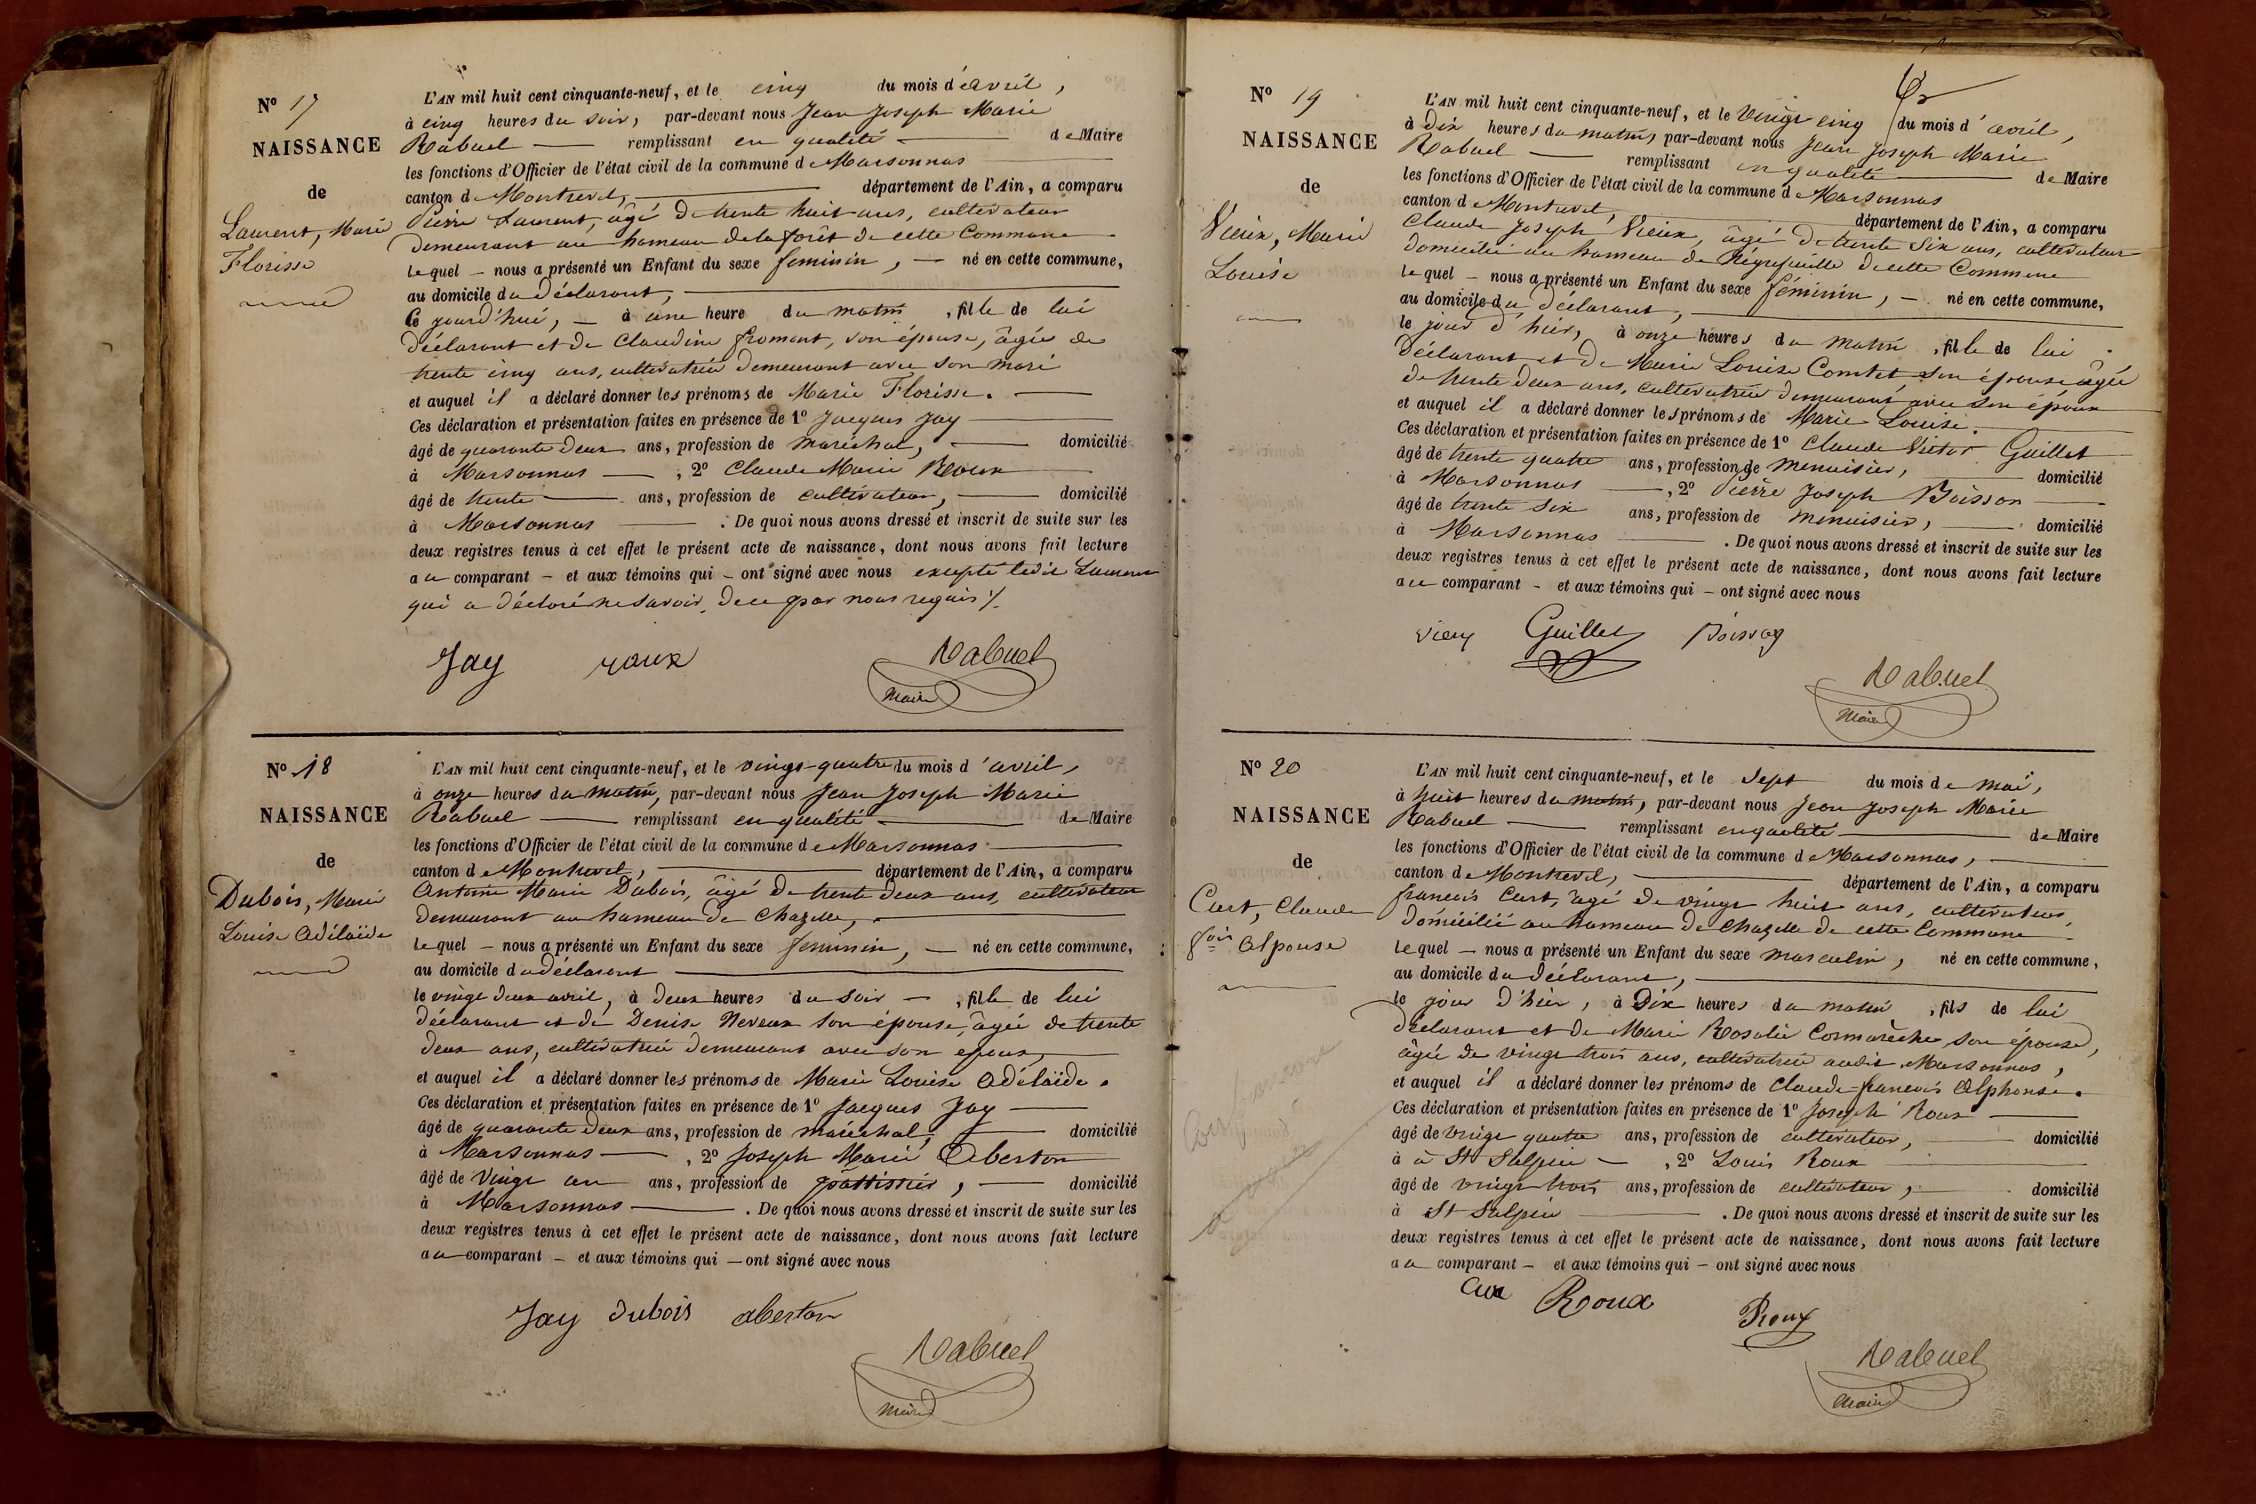 N° 17
NAISSANCE
de
Laurent, Marie
Florisse
L'AN mil huit cent cinquante-neuf, et le cinq du mois d'avril,
à cinq heures du soir, par-devant nous Jean Joseph Marie
Rabuel remplissant en qualité de Maire
les fonctions d'Officier de l'état civil de la commune de Marsonnas
canton de Montrevel, département de l'Ain, a comparu
Pierre Laurent, âgé de trente huit ans, cultivateur
demeurant au hameau de la forêt de cette Commune
lequel nous a présenté un Enfant du sexe feminin, né en cette commune,
au domicile du déclarant,
Ce jourd'hui, à une heure du matin, fille de lui
déclarant et de Claudine fromont, son épouse, âgée de
trente cinq ans, cultivatrice demeurant avec son mari
et auquel il a déclaré donner les prénoms de Marie Florisse.
Ces déclaration et présentation faites en présence de 1° Jacques Jay
âgé de quarante deux ans, profession de maréchal, domicilié
à Marsonnas, 2° Claude Marie Roux
âgé de trente ans, profession de cultivateur, domicilié
à Marsonnas. De quoi nous avons dressé et inscrit de suite sur les
deux registres tenus à cet effet le présent acte de naissance, dont nous avons fait lecture
au comparant et aux témoins qui ont signé avec nous excepté ledit Laurent
qui a déclaré ne savoir, de ce par nous requis
Jay roux Rabuel
Maire
N° 18
NAISSANCE
de
Dubois, Marie
Louise Adélaïde
L'AN mil huit cent cinquante-neuf, et le vingt-quatre du mois d'avril,
à onze heures du matin, par-devant nous Jean Joseph Marie
Rabuel remplissant en qualité de Maire
les fonctions d'Officier de l'état civil de la commune de Marsonnas
canton de Montrevel, département de l'Ain, a comparu
Antoine Marie Dubois, âgé de trente deux ans, cultivateur
demeurant au hameau de Chazelle,
lequel nous a présenté un Enfant du sexe feminin, né en cette commune,
au domicile du déclarant
le vingt deux avril, à deux heures du soir, fille de lui
déclarant et de Denise Neveux son épouse, âgée de trente
deux ans, cultivatrice demeurant avec son époux,
et auquel il a déclaré donner les prénoms de Marie Louise Adélaïde.
Ces déclaration et présentation faites en présence de 1° Jacques Jay
âgé de quarante deux ans, profession de maréchal, domicilié
à Marsonnas, 2° Joseph Marie Oberton
âgé de vingt un ans, profession de pâttissier, domicilié
à Marsonnas. De quoi nous avons dressé et inscrit de suite sur les
deux registres tenus à cet effet le présent acte de naissance, dont nous avons fait lecture
au comparant et aux témoins qui ont signé avec nous
Jay Dubois oberton
Rabuel
Maire
N° 19
NAISSANCE
de
Vieux, Marie
Louise
L'AN mil huit cent cinquante-neuf, et le vingt cinq du mois d'avril,
à dix heures du matin, par-devant nous Jean Joseph Marie
Rabuel remplissant en qualité de Maire
les fonctions d'Officier de l'état civil de la commune de Marsonnas
canton de Montrevel, département de l'Ain, a comparu
Claude Joseph Vieux, âgé de trente six ans, cultivateur
domicilié au hameau de de cette Commune
lequel nous a présenté un Enfant du sexe féminin, né en cette commune,
au domicile du déclarant,
le jour d'hier, à onze heures du matin, fille de lui
déclarant et de Marie Louise Comtet son épouse âgée
de trente deux ans, cultivatrice demeurant avec son époux
et auquel il a déclaré donner les prénoms de Marie Louise.
Ces déclaration et présentation faites en présence de 1° Claude Victor Guillet
âgé de trente quatre ans, profession de menuisier, domicilié
à Marsonnas, 2° Pierre Joseph Boisson
âgé de trente six ans, profession de menuisier, domicilié
à Marsonnas. De quoi nous avons dressé et inscrit de suite sur les
deux registres tenus à cet effet le présent acte de naissance, dont nous avons fait lecture
au comparant et aux témoins qui ont signé avec nous
vieux Guillet Boisson
Rabuel
Maire
N° 20
NAISSANCE
de
Curt, Claude
fois Alponse
L'AN mil huit cent cinquante-neuf, et le sept du mois de mai,
à huit heures du matin, par-devant nous Jean Joseph Marie
Rabuel remplissant en qualité de Maire
les fonctions d'Officier de l'état civil de la commune de Marsonnas,
canton de Montrevel, département de l'Ain, a comparu
françois Curt, âgé de vingt huit ans, cultivateur
domicilié au hameau de Chazelle de cette Commune
lequel nous a présenté un Enfant du sexe masculin, né en cette commune,
au domicile du déclarant,
le jour d'hier, à Dix heures du matin, fils de lui
déclarant et de Marie Rosalie Cormarèche son épouse,
âgée de vingt trois ans, cultivatrice audit Marsonnas,
et auquel il a déclaré donner les prénoms de Claude-françois Alphonse.
Ces déclaration et présentation faites en présence de 1° Joseph Roux
âgé de vingt quatre ans, profession de cultivateur, domicilié
à à St Sulpice, 2° Louis Roux
âgé de vingt trois ans, profession de cultivateur, domicilié
à St Sulpice. De quoi nous avons dressé et inscrit de suite sur les
deux registres tenus à cet effet le présent acte de naissance, dont nous avons fait lecture
au comparant et aux témoins qui ont signé avec nous
Roux Roux
Rabuel
Maire